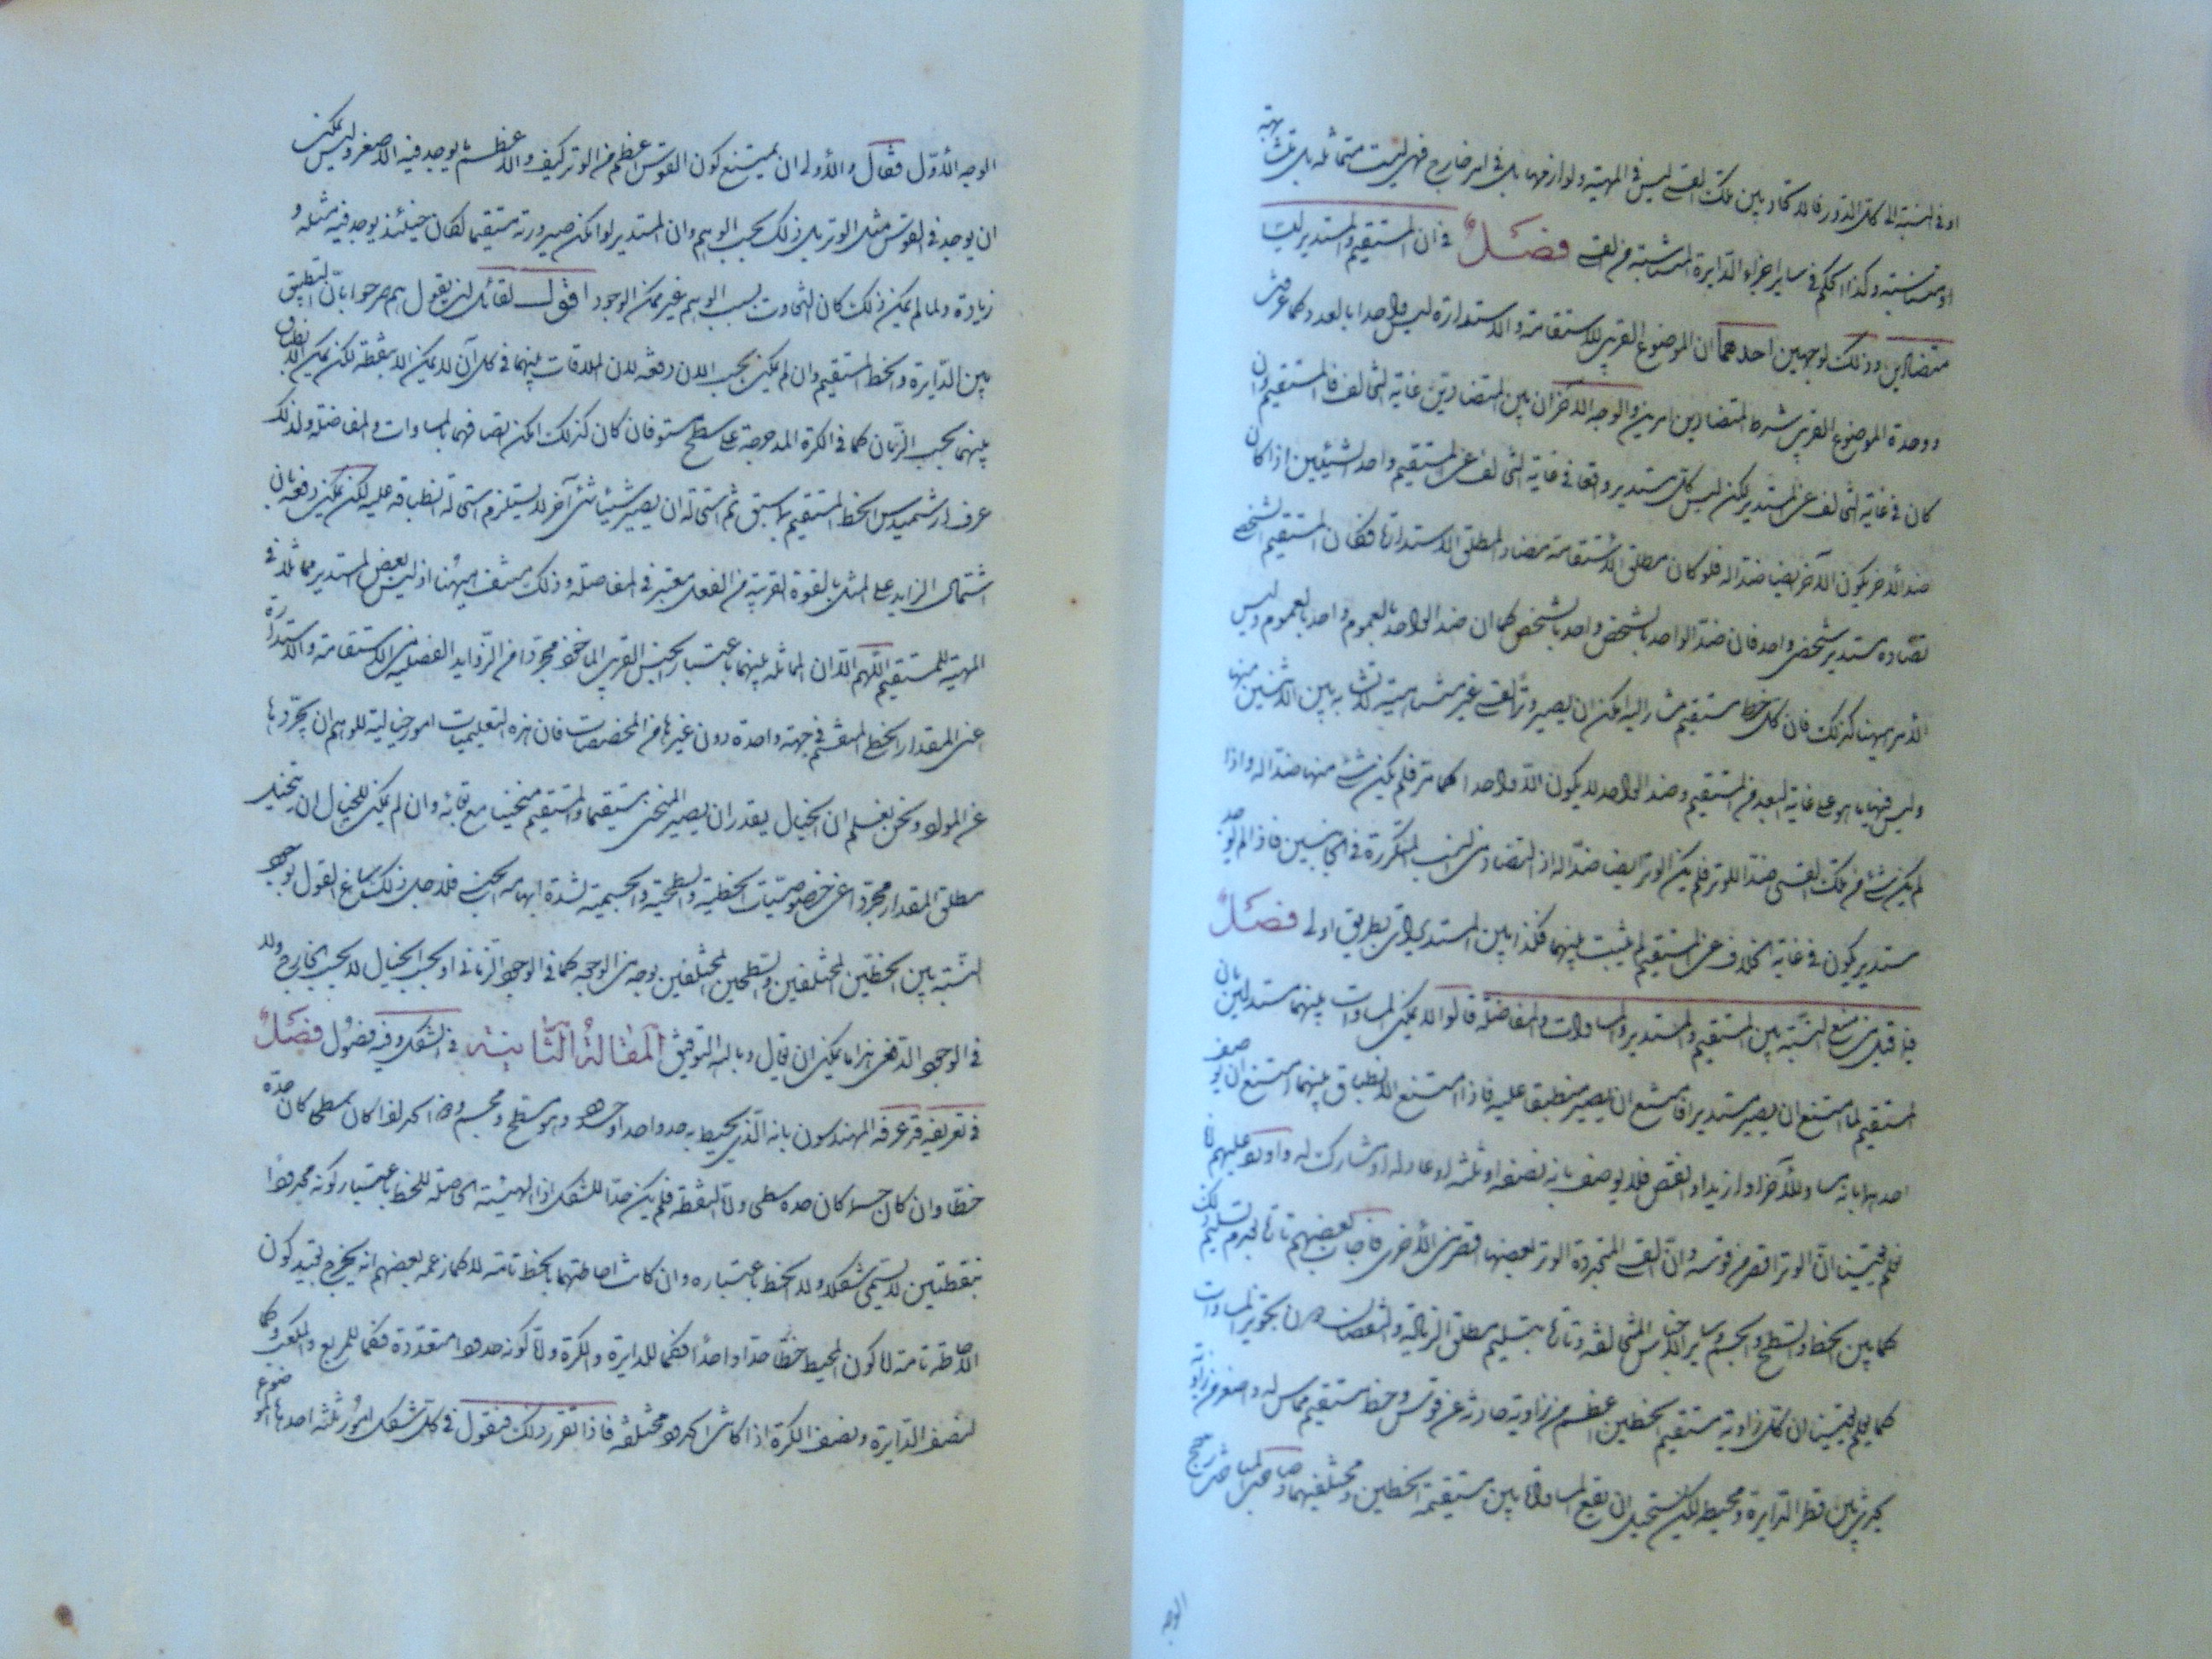 او في النسبة الى كل الدور فالاتحاد بين تلك القسي ليس في المهية ولوازمها بل في امر خارج فهي ليست متماثله بل متشابهة
او متناسبة وكذا الحكم في ساير اجزاء الدايرة المتشابهة من القسي فصل في ان المستقيم والمستدير ليسا
متضادين وذلك لوجهين احدهما ان الموضوع القريب للاستقامة والاستدارة ليس واحدا بالعدد كما عرفت
ووحدة الموضوع القريب شرط المتضادين امرين والوجه الآخر ان بين المتضادين غاية التخالف فالمستقيم وان
كان في غاية التخالف عن المستدير لكن ليس كل مستدير واقعا في غاية التخالف عن المستقيم واحد الشيئين اذا كان
ضد الآخر يكون الآخر ايضا ضدا له فلو كان مطلق الاستقامة مضاد المطلق الاستدارة فكان المستقيم الشخصي
تضاده مستدير شخصي واحد فان ضد الواحد بالشخص واحد بالشخص كما ان ضد الواحد بالعموم واحد بالعموم وليس
الامر ههنا كذلك فان كل خط مستقيم مشار اليه امكن ان يصير وترا لقسي غير متشابهة لا تشابه بين الاثنين منها
وليس فيها ما هو على غاية البعد من المستقيم وضد الواحد لا يكون الا واحدا كما مر فلم يكن شئ منها ضدا له واذا
لم يكن شئ من تلك القسي ضدا للوتر فلم يكن الوتر ايضا ضدا له اذ التضاد من النسب المتكررة في الجانبين فاذا لم يوجد
مستدير يكون في غاية الخلاف عن المستقيم لم يثبت بينهما فكذا بين المستديرات بطريق اولى فصل
فيما قيل من منع النسبة بين المستقيم والمستدير والمساوات والمفاضلة قالوا لا يمكن المساوات بينهما مستدلين بان
المستقيم لما امتنع ان يصير مستديرا فامتنع ان يصير منطبقا عليه فاذا امتنع الانطباق بينهما امتنع ان يوصف
احدهما بانه مساو للآخر او ازيد او انقص فلا يوصف بانه نصفه او ثلثه او عادله او مشارك له واورد عليهم انا
نعلم يقينا ان الوتر اقصر من قوسه وان القسي المتحدة الوتر بعضها اقصر من الأخرى فاجاب بعضهم تارة بعدم تسليم ذلك
كما بين الخط والسطح والجسم وساير الاجناس المتخالفة وتارة بتسليم مطلق الزيادة والنقصان دون تجويز المساوات
كما يعلم يقينا ان كل زاوية مستقيم الخطين اعظم من زاوية حادثة عن قوس وخط مستقيم مماس له واصغر من زاوية
يحدث بين قطر الدايرة ومحيطه لكن يستحيل ان يقع المساواة بين مستقيمة الخطين ومختلفيهما وصاحب المباحث رجح
الوجه
الوجه الأول فقال والأولى ان يمتنع كون القوس اعظم من الوتر كيف والاعظم ما يوجد فيه الاصغر وليس يمكن
ان يوجد في القوس مثل الوتر بل ذلك بحسب الوهم وان المستدير لو امكن صيرورته مستقيما لكان حينئذ يوجد فيه مثله و
زيادة ولما لم يمكن ذلك كان التفاوت بحسب الوهم غير ممكن الوجود اقول لقائل ان يقول هم صرحوا بان التطبيق
بين الدايرة والخط المستقيم وان لم يكن بحسب الان دفعه لان الملاقات بينهما في كل آن لا يمكن الا بنقطة لكن يمكن الانطباق
بينهما بحسب الزمان كما في الكرة المدحرجة على سطح مستو فان كان كذلك امكن اتصافهما بالمساوات والمفاضلة ولذلك
عرف ارشميدس الخط المستقيم بما سبق ثم استحالة ان يصير شيئا شئ آخر لا يستلزم استحالة انطباقه عليه لكن يمكن دفعه بان
اشتمال الزايد على المثل بالقوة القريبة من الفعل معتبر في المفاضلة وذلك منتف ههنا اذ ليس بعض المستدير مماثلا في
المهية للمستقيم اللهم الا ان المماثلة بينهما باعتبار الجنس القريب الماخوذ مجردا من الزوايد الفصلية من الاستقامة والاستدارة
اعني المقدار الخط المنقسم في جهة واحدة دون غيرها من المخصصات فان هذه التعليميات امور خيالية للوهم ان يجردها
عن المواد ونحن نعلم ان الخيال يقدر ان يصير المنحني مستقيما والمستقيم منحنيا مع بقائه وان لم يمكن للخيال ان يتخيل
مطلق المقدار مجردا عن خصوصيات الخطية والسطحية والجسمية لشدة ابهام الجنس فلاجل ذلك ساغ القول بوجود
النسبة بين الخطين المختلفين والسطحين المختلفين بوجه من الوجوه كما في الوجود الزماني او بحسب الخيال لا بحسب الخارج ولا
في الوجود الدفعي هذا ما يمكن ان يقال وبالله التوفيق المقالة الثانية في الشكل وفيه فصول فصل
في تعريفه قد عرفه المهندسون بانه الذي يحيط به حد واحد او حدود وهو سطح ومجسم وهذا الحد اذا كان سطحا كان حده
خطا وان كان جسما كان حده سطحا ولا النقطة فلم يكن حدا للشكل اذ الهيئة الحاصلة للخط باعتبار كونه محدودا
بنقطتين لا يسمى شكلا ولا الخط باعتباره وان كانت احاطتهما بالخط تامة لا كما زعمه بعضهم انه يخرج بقيد كون
الاحاطة تامة لا كون المحيط خطا حدا واحدا فكما للدايرة والكرة ولا كونه حدودا متعددة فكما للمربع والمكعب وكما
لنصف الدايرة ونصف الكرة اذا كانت الحدود مختلفة فاذا تقرر ذلك فنقول في كل شكل امور ثلثة احدها الموضوع